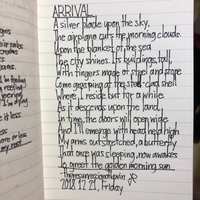 ARRIVAL
A silver blade upon the sky,
The airplane cuts the morning clouds.
Upon the blanket of the sea
The city shines. Its buildings, tall,
With fingers made of steel and stone
Come grasping at the stars and shell
Where I reside but for a while.
As it descends upon the land,
In time, the doors will open wide
And I'll emerge with head held high
My arms outstretched, a butterfly
That once was sleeping, now awakes
To greet the golden morning sun.
2018.12.21, Friday